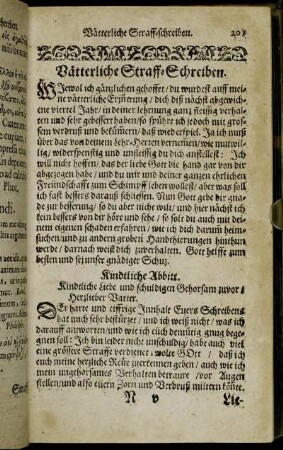 Vätterliche Straff-schreiben.
Vätterliche Straff-Schreiben.
WJewol ich gänzlichen gehoffet / du wurdest auff mei-
ne vätterliche Erjnnerung / dich diß nächst abgewich-
ene viertel Jahr / in deiner lehrnung ganz fleissig verhal-
ten und sehr gebessert haben / so spühr ich jedoch mit gros-
sem verdruß und bekümern / daß wiederspiel. Ja ich muß
über das von deinem Lehr-Herren vernemen / wie mutwil-
lig / widerspenstig und unfleissig du dich anstellest: Ich
wil nicht hoffen / das der liebe Gott die hand gar von dir
abgezogen habe / und du mir und deiner ganzen ehrlichen
Freundschafft zum Schimpff leben wollest / aber was soll
ich fast bessers darauß schliessen. Nun Gott gebe dir gna-
de zur besserung / so du aber nicht wilt / und hier nächst ich
kein bessers von dir höre und sehe / so solt du auch mit dei-
nem eigenen schaden erfahren / wie ich dich darüm heim-
suchen und zu andern grobern Handthierungen hinthun
werde / darnach weiß dich zuverhalten. Gott helffe zum
besten und sey unser gnädiger Schuz.
Kindtliche Abbitt.
Kindtliche Liebe und schuldigen Gehorsam zuvor /
Herzlieber Vatter.
DEr harte und eiffrige Innhalt Euers Schreibens
hat mich sehr bestürzet / und ich weiß nicht / was ich
darauff antworten / und wie ich eüch demütig gnug begeg-
nen soll: Ich bin leider nicht unschuldig / habe auch viel
eine grössere Straffe verdienet / wolte GOtt / daß ich
euch meine herzliche Reüe zuerkennen geben / auch wie ich
mein ungehorsames Verhalten betraure / vor Augen
stellen / und also eüern Zorn und Verdruß miltern könte.
N v
Lie-